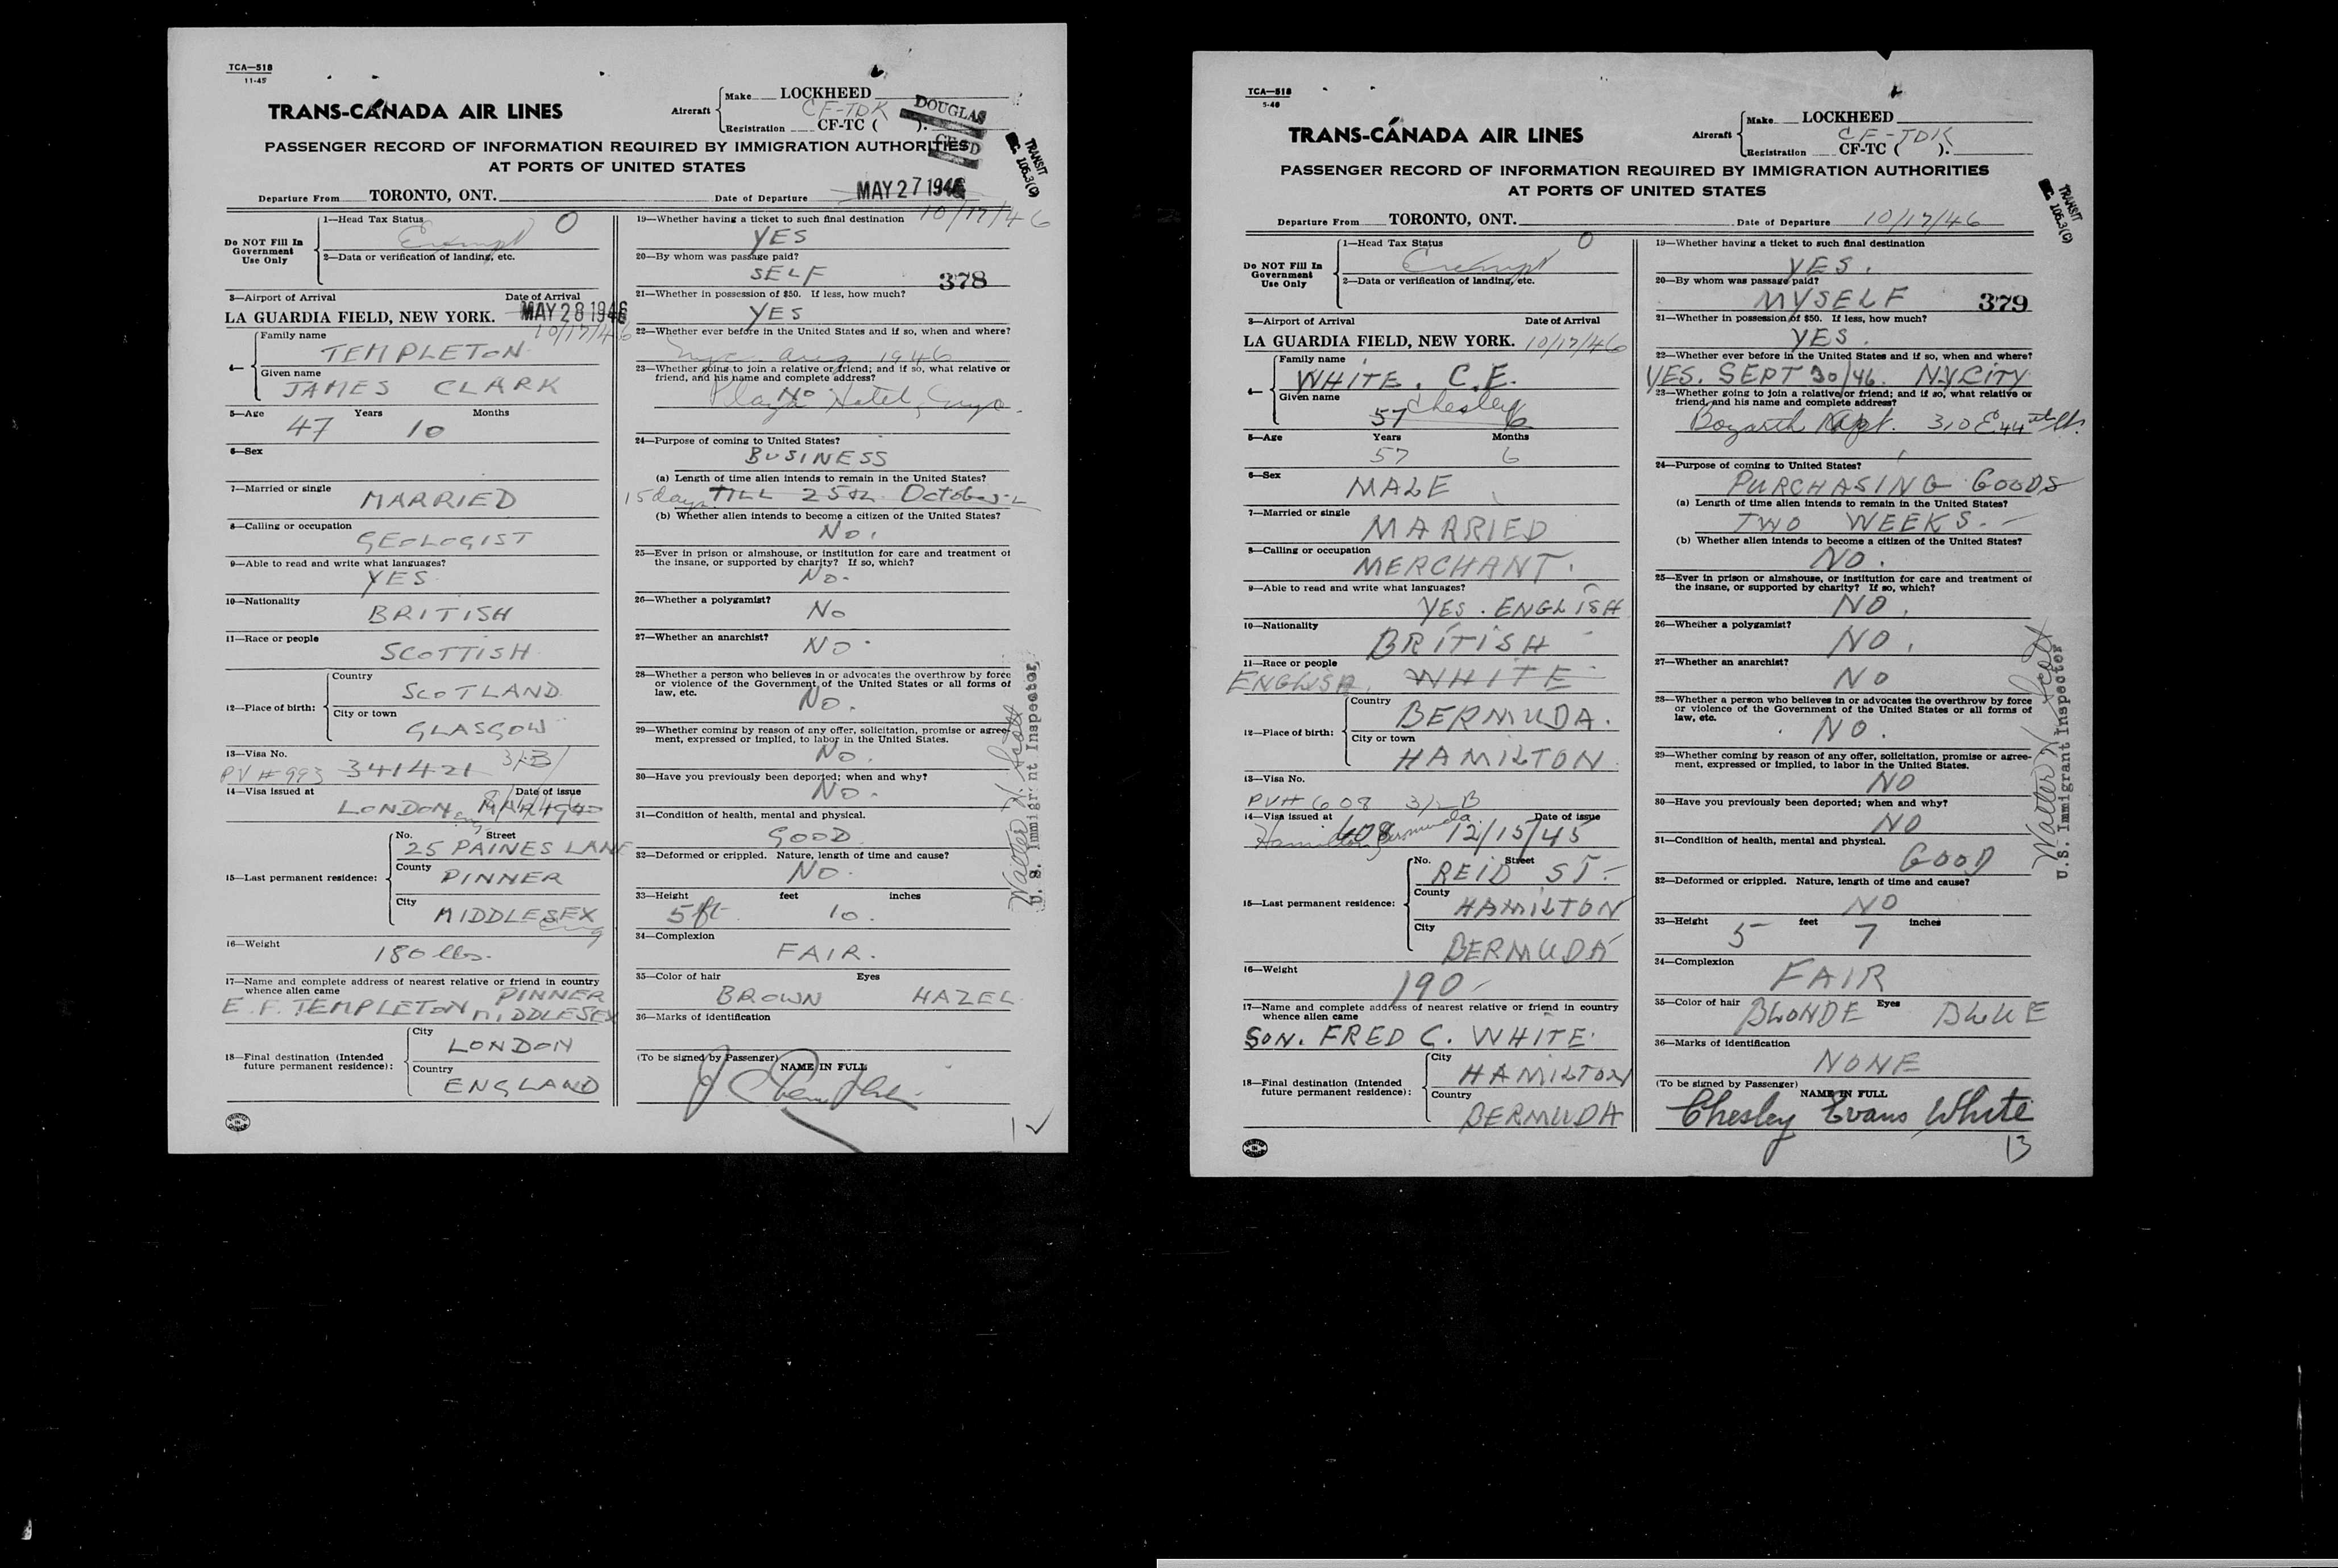 TCA—518
11-45
TRANS-CANADA AIR LINES
Aircraft
Make LOCKHEED
CF-TDK
Registration CF-TC ( ).
DOUGLAS
PASSENGER RECORD OF INFORMATION REQUIRED BY IMMIGRATION AUTHORITIES
AT PORTS OF UNITED STATES
TRANSIT
Departure From TORONTO, ONT.
Date of Departure MAY 27 1946
10/17/46
Do NOT Fill In
Government
Use Only
1—Head Tax Status
Exempt
0
2—Data or verification of landing, etc.
3—Airport of Arrival
Date of Arrival
LA GUARDIA FIELD, NEW YORK. MAY 28 1946
10/17/46
4—
Family name
TEMPLETON
Given name
JAMES CLARK
5—Age Years Months
47 10
6—Sex
7—Married or single
MARRIED
8—Calling or occupation
GEOLOGIST
9—Able to read and write what languages?
YES
10—Nationality
BRITISH
11—Race or people
SCOTTISH
12—Place of birth:
Country
SCOTLAND
City or town
GLASGOW
13—Visa No.
PV # 993 341421
14—Visa issued at Date of issue
LONDON
15—Last permanent residence:
No. Street
25 PAINES LANE
County
PINNER
City
MIDDLESEX
Eng
16—Weight
180 lbs.
17—Name and complete address of nearest relative or friend in country
whence alien came
PINNER
E. F. TEMPLETON MIDDLESEX
18—Final destination (Intended
future permanent residence):
City
LONDON
Country
ENGLAND
19—Whether having a ticket to such final destination
YES
20—By whom was passage paid?
SELF
378
21—Whether in possession of $50. If less, how much?
YES
22—Whether ever before in the United States and if so, when and where?
nyc. aug 1946
23—Whether going to join a relative or friend; and if so, what relative or
friend, and his name and complete address?
No
Plaza Hotel, nyc.
24—Purpose of coming to United States?
BUSINESS
(a) Length of time alien intends to remain in the United States?
15 days TILL 25th October
(b) Whether alien intends to become a citizen of the United States?
No.
25—Ever in prison or almshouse, or institution for care and treatment of
the insane, or supported by charity? If so, which?
No.
26—Whether a polygamist?
No
27—Whether an anarchist?
No.
28—Whether a person who believes in or advocates the overthrow by force
or violence of the Government of the United States or all forms of
law, etc.
No.
29—Whether coming by reason of any offer, solicitation, promise or agree-
ment, expressed or implied, to labor in the United States.
No.
30—Have you previously been deported; when and why?
No.
31—Condition of health, mental and physical.
GOOD
32—Deformed or crippled. Nature, length of time and cause?
No.
33—Height feet inches
5 ft 10.
34—Complexion
FAIR.
35—Color of hair Eyes
BROWN HAZEL
36—Marks of identification
(To be signed by Passenger)
NAME IN FULL
J C Templeton
Walter N. Scott
U. S. Immigrant Inspector
TCA—518
5-46
TRANS-CANADA AIR LINES
Aircraft
Make LOCKHEED
CF-TDK
Registration CF-TC ( ).
PASSENGER RECORD OF INFORMATION REQUIRED BY IMMIGRATION AUTHORITIES
AT PORTS OF UNITED STATES
TRANSIT
Departure From TORONTO, ONT.
Date of Departure 10/17/46
Do NOT Fill In
Government
Use Only
1—Head Tax Status
Exempt
0
2—Data or verification of landing, etc.
3—Airport of Arrival
Date of Arrival
LA GUARDIA FIELD, NEW YORK. 10/17/46
4—
Family name
WHITE. C.E.
Given name
Chesley
57 6
5—Age Years Months
57 6
6—Sex
MALE
7—Married or single
MARRIED
8—Calling or occupation
MERCHANT.
9—Able to read and write what languages?
YES. ENGLISH
10—Nationality
BRITISH
11—Race or people
ENGLISH. WHITE
12—Place of birth:
Country
BERMUDA.
City or town
HAMILTON
13—Visa No.
PV# 608 3/2 B
14—Visa issued at Date of issue
Hamilton, Bermuda 608 12/15/45
15—Last permanent residence:
No. Street
REID ST.
County
HAMILTON
City
BERMUDA
16—Weight
190
17—Name and complete address of nearest relative or friend in country
whence alien came
SON. FRED C. WHITE.
18—Final destination (Intended
future permanent residence):
City
HAMILTON
Country
BERMUDA
19—Whether having a ticket to such final destination
YES.
20—By whom was passage paid?
MYSELF
379
21—Whether in possession of $50. If less, how much?
YES.
22—Whether ever before in the United States and if so, when and where?
YES. SEPT 30/46. N.Y. CITY
23—Whether going to join a relative or friend; and if so, what relative or
friend, and his name and complete address?
Bogarth Apt. 310 E 44th St.
24—Purpose of coming to United States?
PURCHASING GOODS
(a) Length of time alien intends to remain in the United States?
TWO WEEKS.
(b) Whether alien intends to become a citizen of the United States?
NO.
25—Ever in prison or almshouse, or institution for care and treatment of
the insane, or supported by charity? If so, which?
NO.
26—Whether a polygamist?
NO.
27—Whether an anarchist?
NO
28—Whether a person who believes in or advocates the overthrow by force
or violence of the Government of the United States or all forms of
law, etc.
NO.
29—Whether coming by reason of any offer, solicitation, promise or agree-
ment, expressed or implied, to labor in the United States.
NO
30—Have you previously been deported; when and why?
NO
31—Condition of health, mental and physical.
GOOD
32—Deformed or crippled. Nature, length of time and cause?
NO
33—Height feet inches
5 7
34—Complexion
FAIR
35—Color of hair Eyes
BLONDE BLUE
36—Marks of identification
NONE
(To be signed by Passenger)
NAME IN FULL
Chesley Evans White
13
Walter N. Scott
U. S. Immigrant Inspector